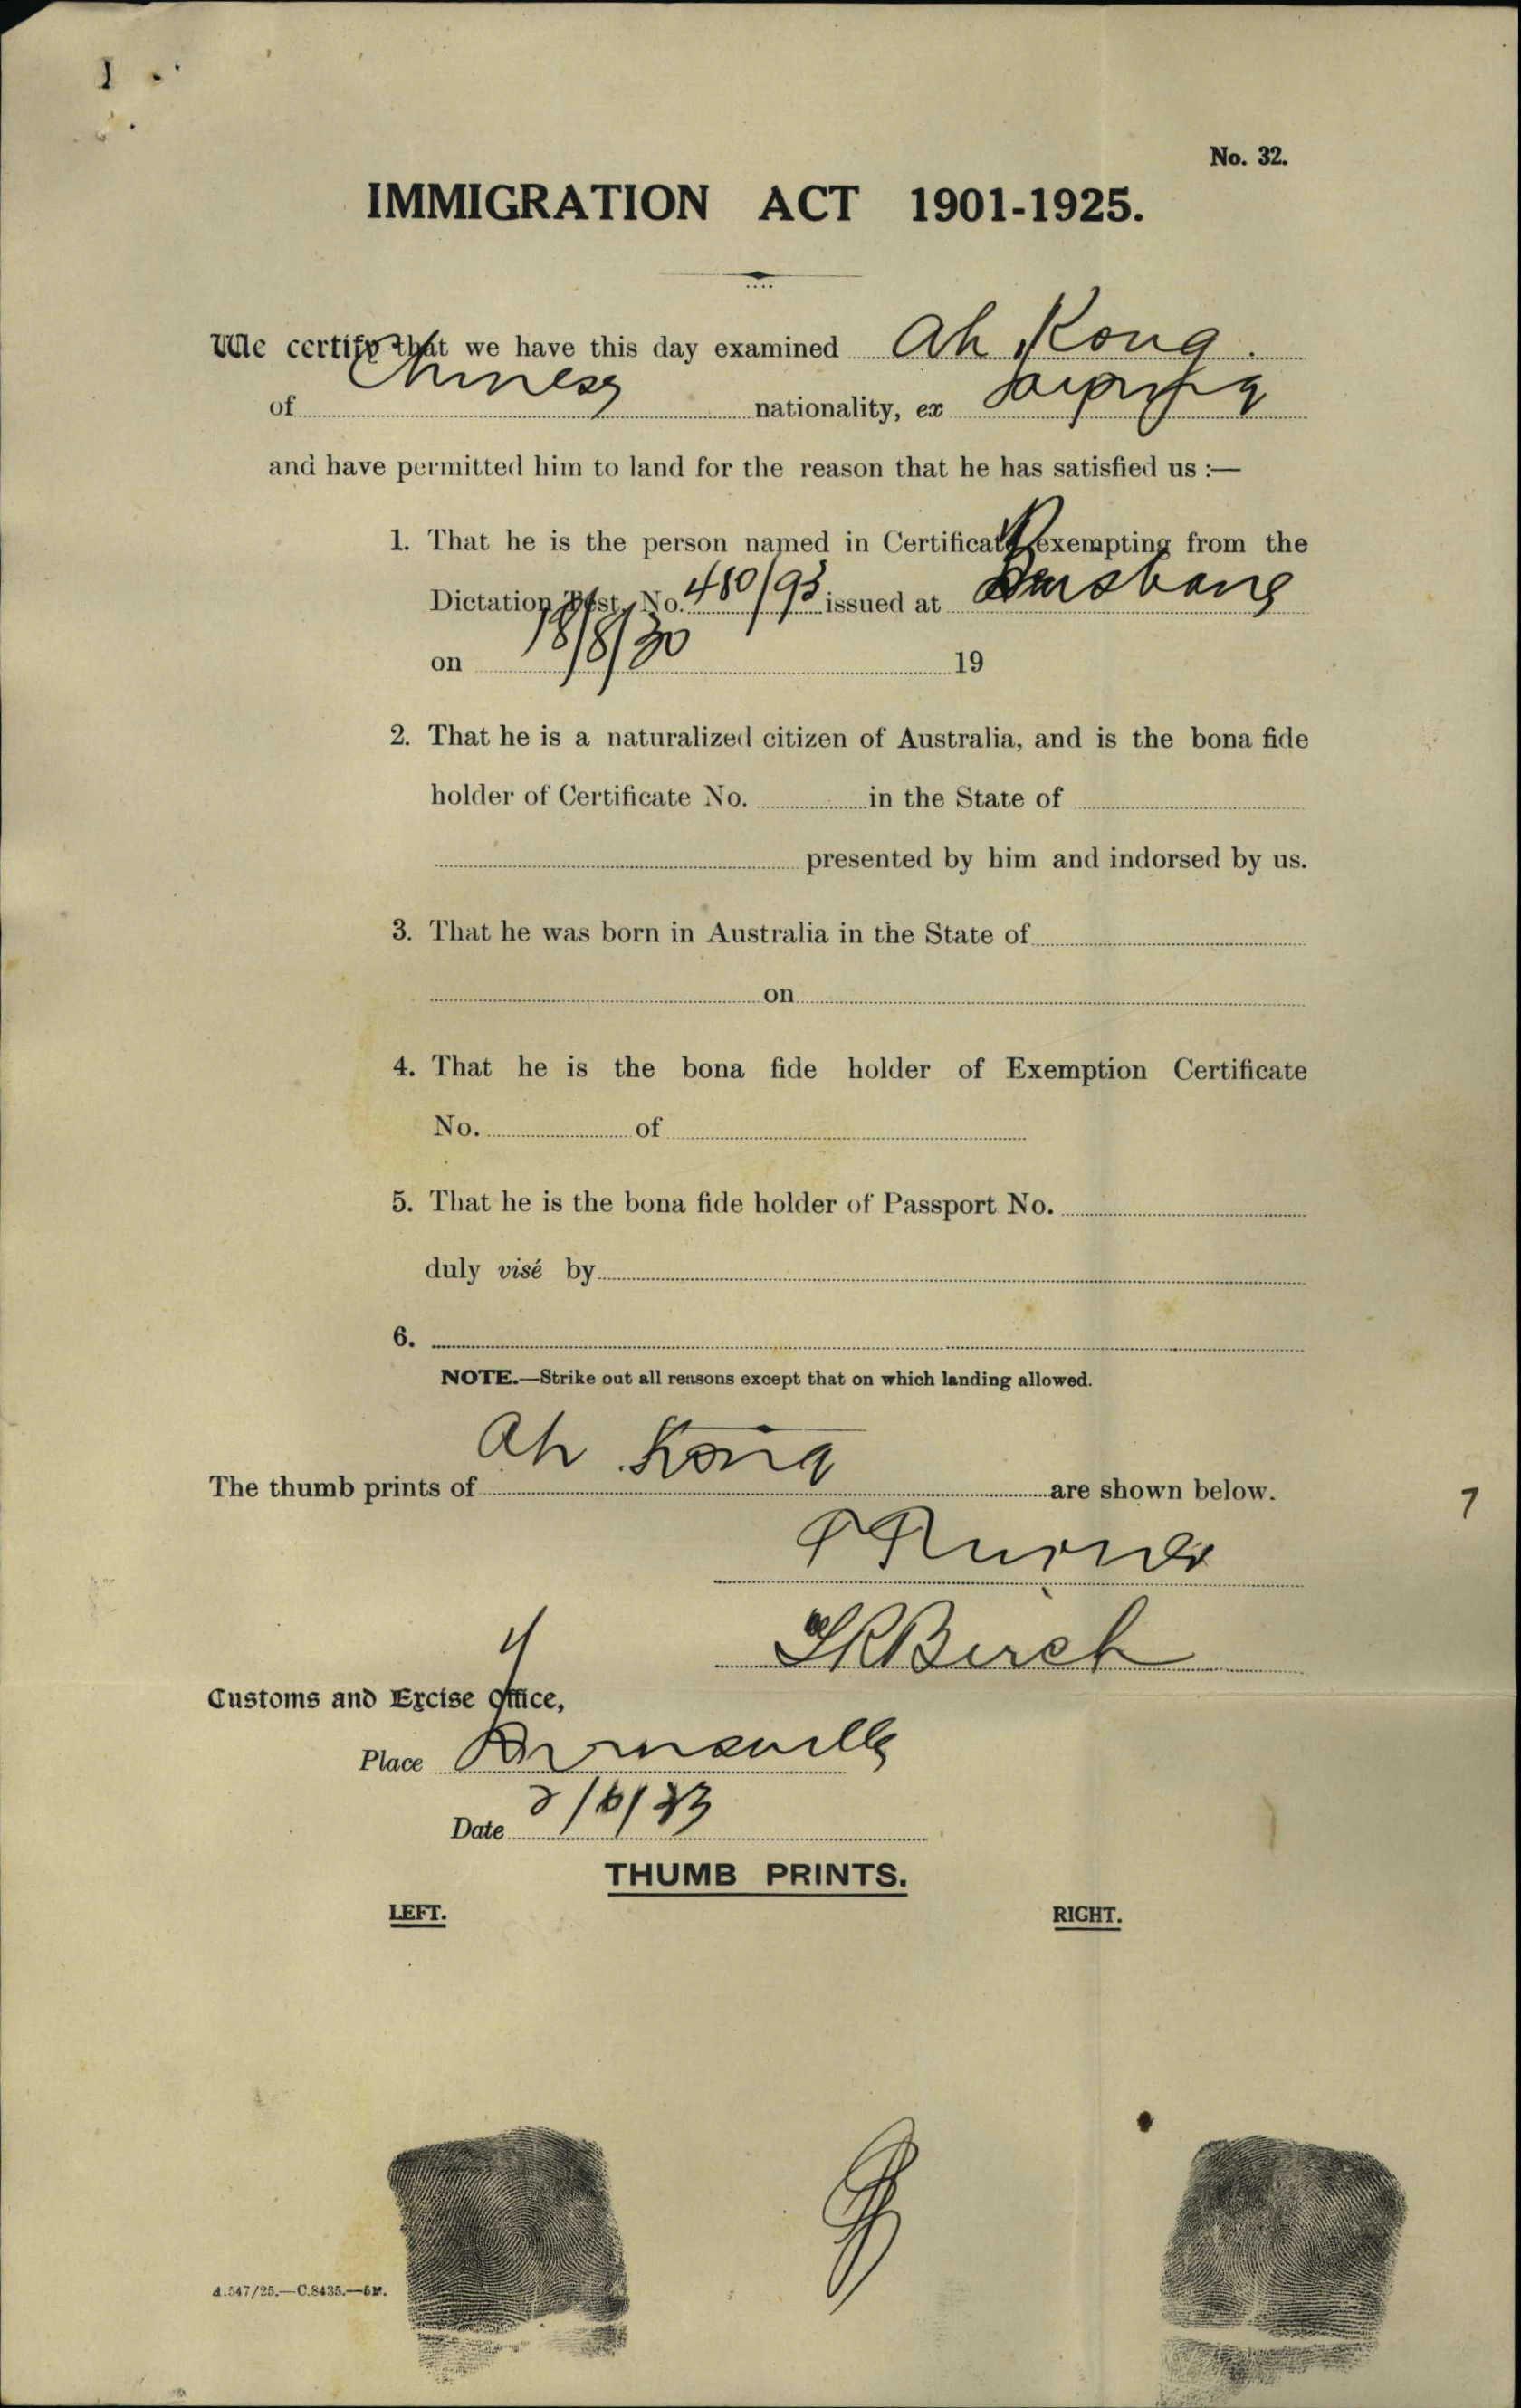 No. 32.
IMMIGRATION ACT 1901-1925.
We certify that we have this day examined Ah Kong.
of Chinese nationality, ex Taiping
and have permitted him to land for the reason that he has satisfied us :—
1. That he is the person named in Certificate exempting from the
Dictation Test, No. 480/93 issued at Brisbane
on 18/8/30 19
2. That he is a naturalized citizen of Australia, and is the bona fide
holder of Certificate No. in the State of
presented by him and indorsed by us.
3. That he was born in Australia in the State of
on
4. That he is the bona fide holder of Exemption Certificate
No. of
5. That he is the bona fide holder of Passport No.
duly visé by
6.
NOTE.—Strike out all reasons except that on which landing allowed.
The thumb prints of Ah Kong are shown below.
7
Birch
Customs and Excise Office,
Place
Date /6/33
THUMB PRINTS.
LEFT. RIGHT.
A.547/25.—C.8435.—5M.